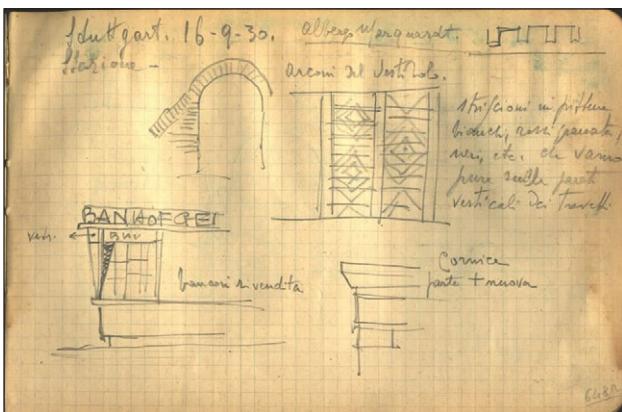 Stuttgart. 16-9-30.
Stazione -
Albergo Marquardt.
arconi del vestibolo.
striscioni in pittura
bianchi, rossi granata,
neri, etc. che vanno
pure sulle pareti
verticali dei travetti.
vetr.
banconi di vendita
Cornice
parte + nuova